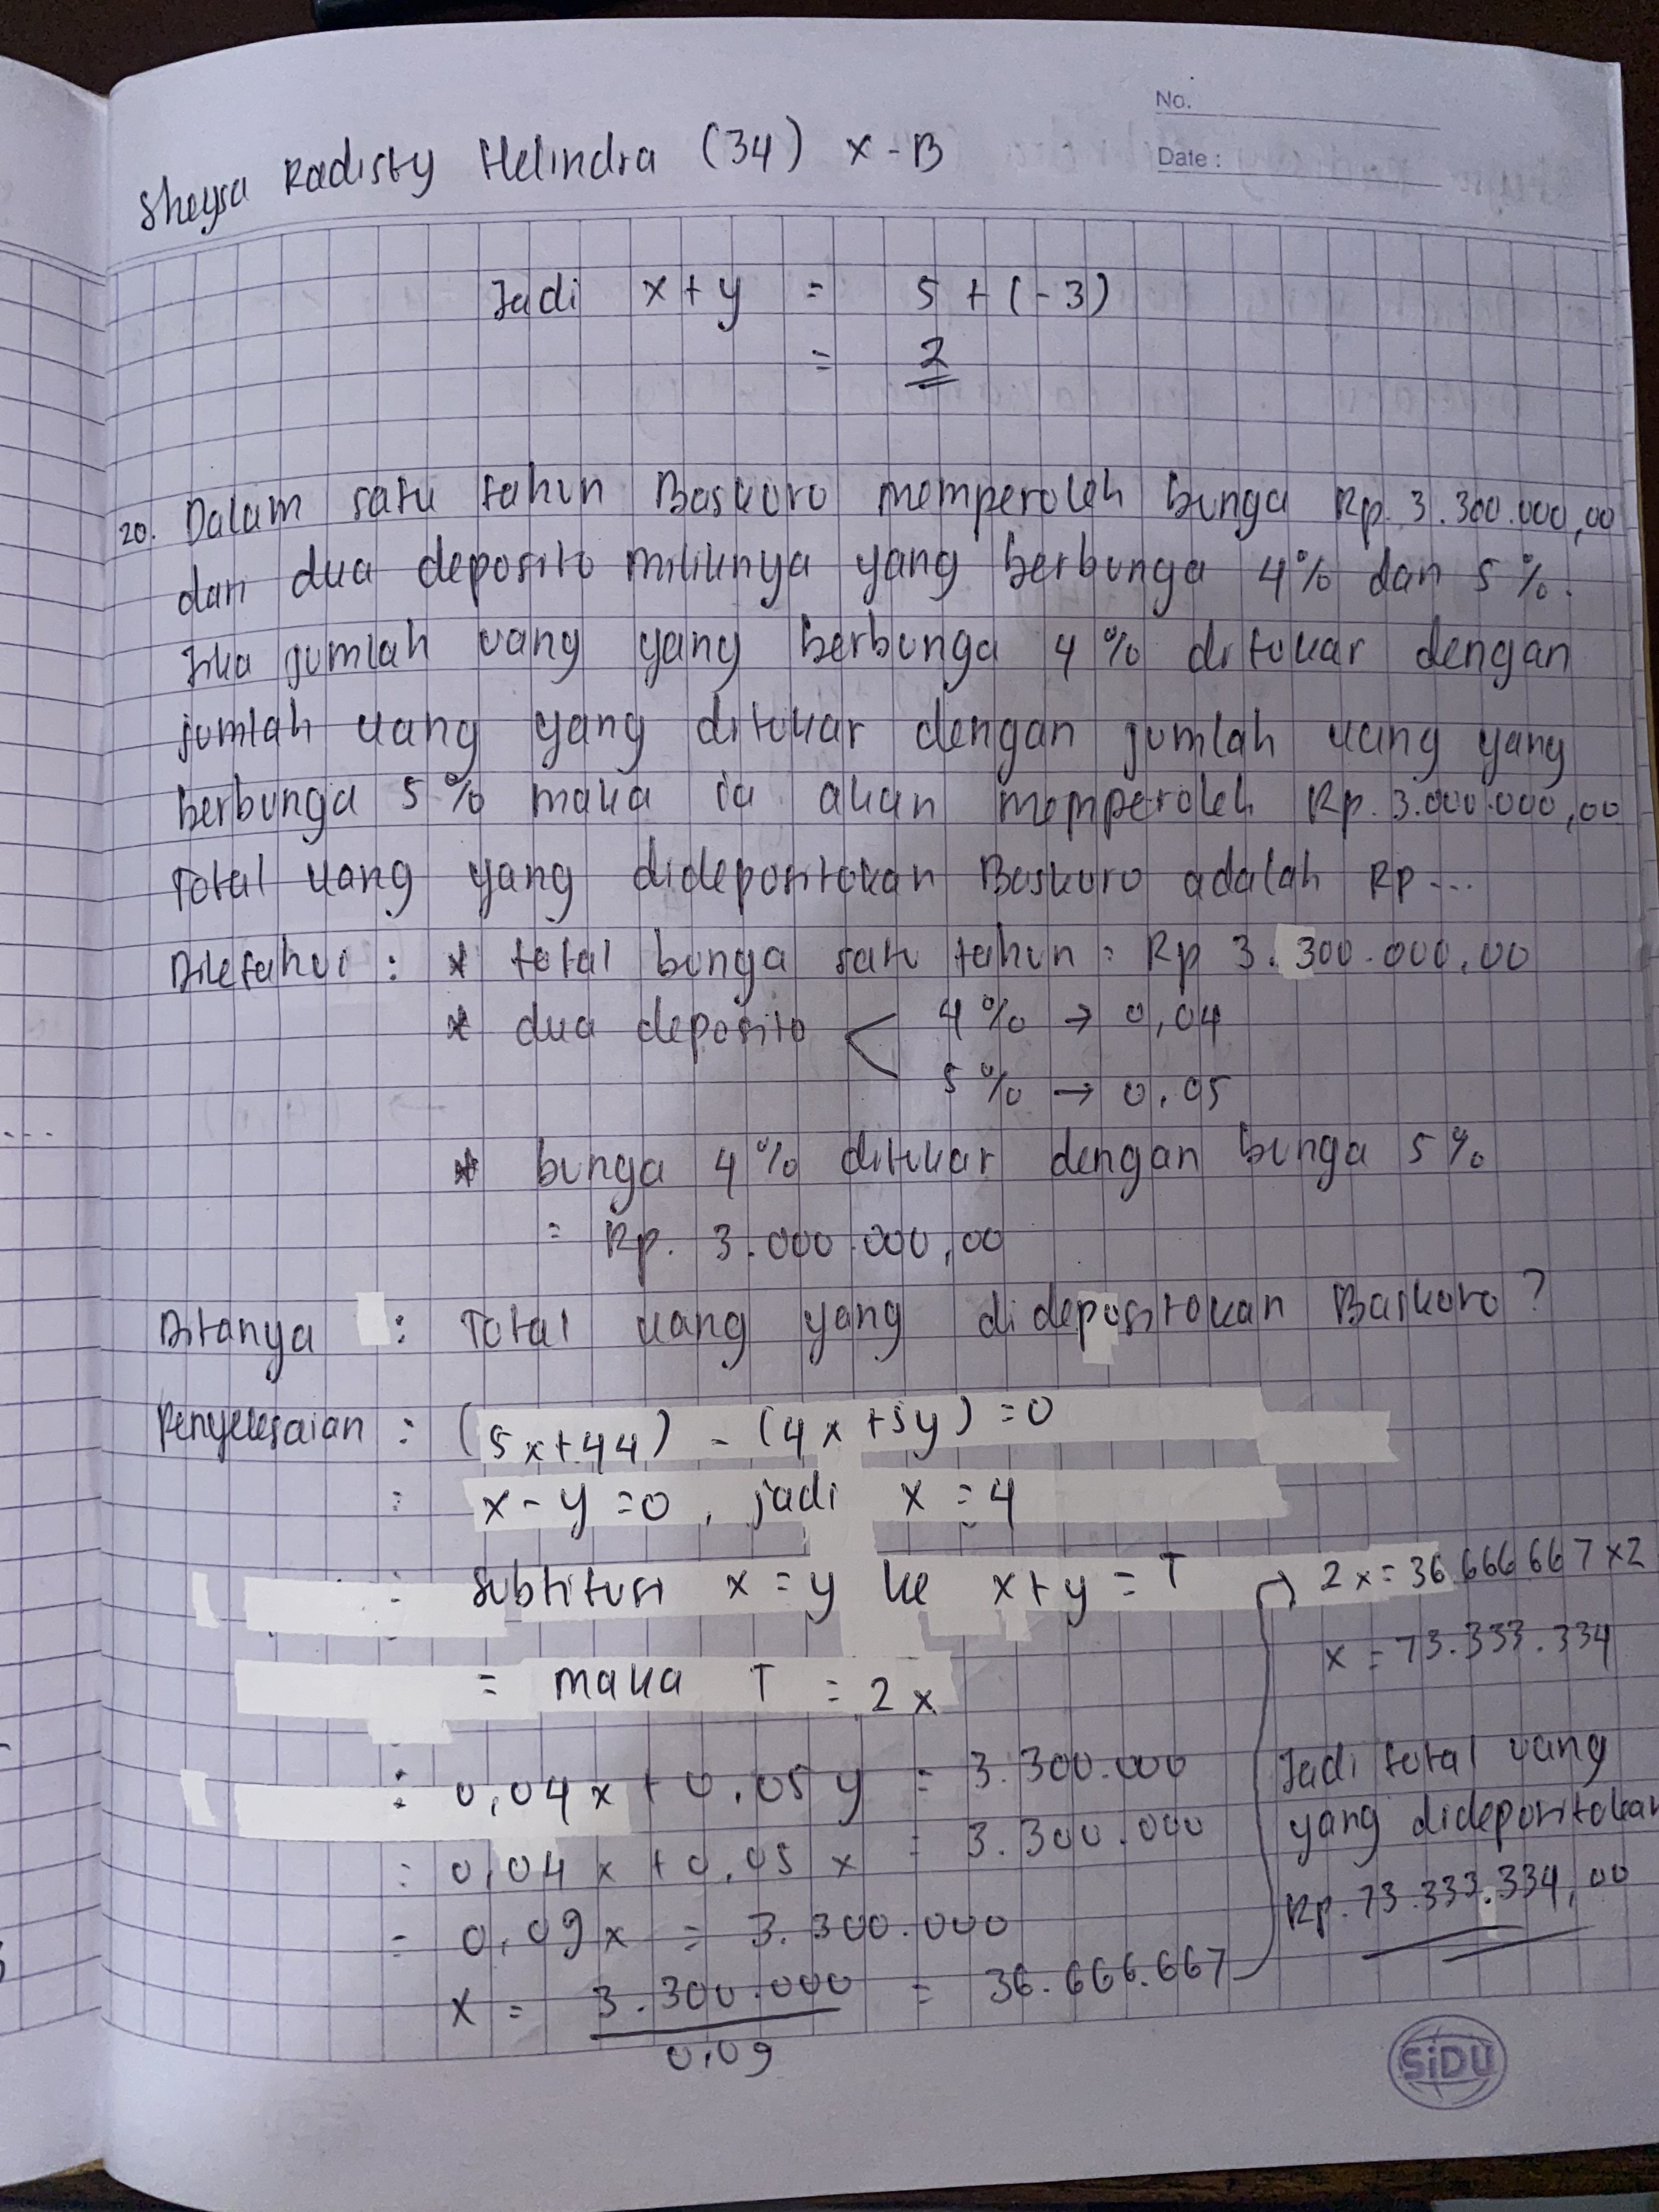 No.
Date :
Sheysa Radisty Helindra (34) X-B
Jadi x + y = 5 + (-3)
= 2
20. Dalam satu tahun Baskoro memperoleh bunga Rp. 3.300.000,00
dan dua deposito miliknya yang berbunga 4% dan 5%.
Jika jumlah uang yang berbunga 4% ditukar dengan
jumlah uang yang ditukar dengan jumlah uang yang
berbunga 5% maka ia akan memperoleh Rp. 3.000.000,00
Total uang yang didepositokan Baskoro adalah Rp ...
Diketahui : * total bunga satu tahun = Rp 3.300.000,00
* dua deposito < 4% → 0,04
5% → 0,05
* bunga 4% ditukar dengan bunga 5%
= Rp. 3.000.000,00
Ditanya : Total uang yang didepositokan Baskoro?
Penyelesaian : (5x+44) - (4x+5y) = 0
= x - y = 0, jadi x = 4
= Subtitusi x = y ke x + y = T
= maka T = 2x
= 0,04x + 0,05y = 3.300.000
= 0,04x + 0,05x = 3.300.000
= 0,09x = 3.300.000
x = 3.300.000 / 0,09 = 36.666.667
→ 2x = 36.666.667 x 2
x = 73.333.334
Jadi total uang
yang didepositokan
Rp. 73.333.334,00
SiDU